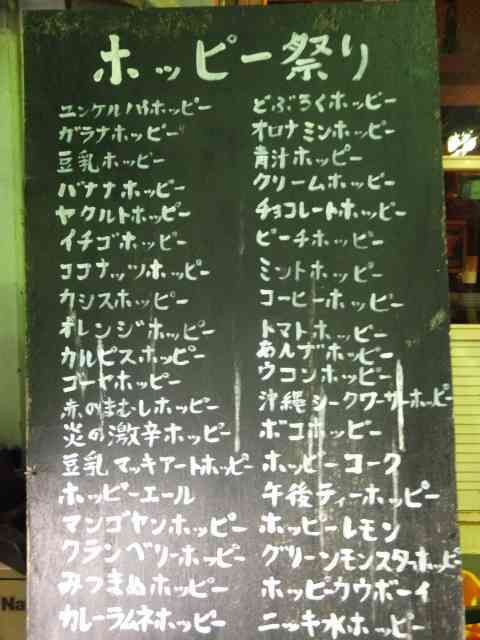 ホッピー祭り
ユンケルハイホッピー
ガラナホッピー
豆乳ホッピー
バナナホッピー
ヤクルトホッピー
イチゴホッピー
ココナッツホッピー
カシスホッピー
オレンジホッピー
カルピスホッピー
ゴーヤホッピー
赤のまむしホッピー
炎の激辛ホッピー
豆乳マッキアートホッピー
ホッピーエール
マンゴヤンホッピー
クランベリーホッピー
みつまめホッピー
カレーラムネホッピー
どぶろくホッピー
オロナミンホッピー
青汁ホッピー
クリームホッピー
チョコレートホッピー
ピーチホッピー
ミントホッピー
コーヒーホッピー
トマトホッピー
あんずホッピー
ウコンホッピー
沖縄シークワーサーホッピー
ボコホッピー
ホッピーコーク
午後ティーホッピー
ホッピーレモン
グリーンモンスターホッピー
ホッピーカウボーイ
ニッキ水ホッピー
Na